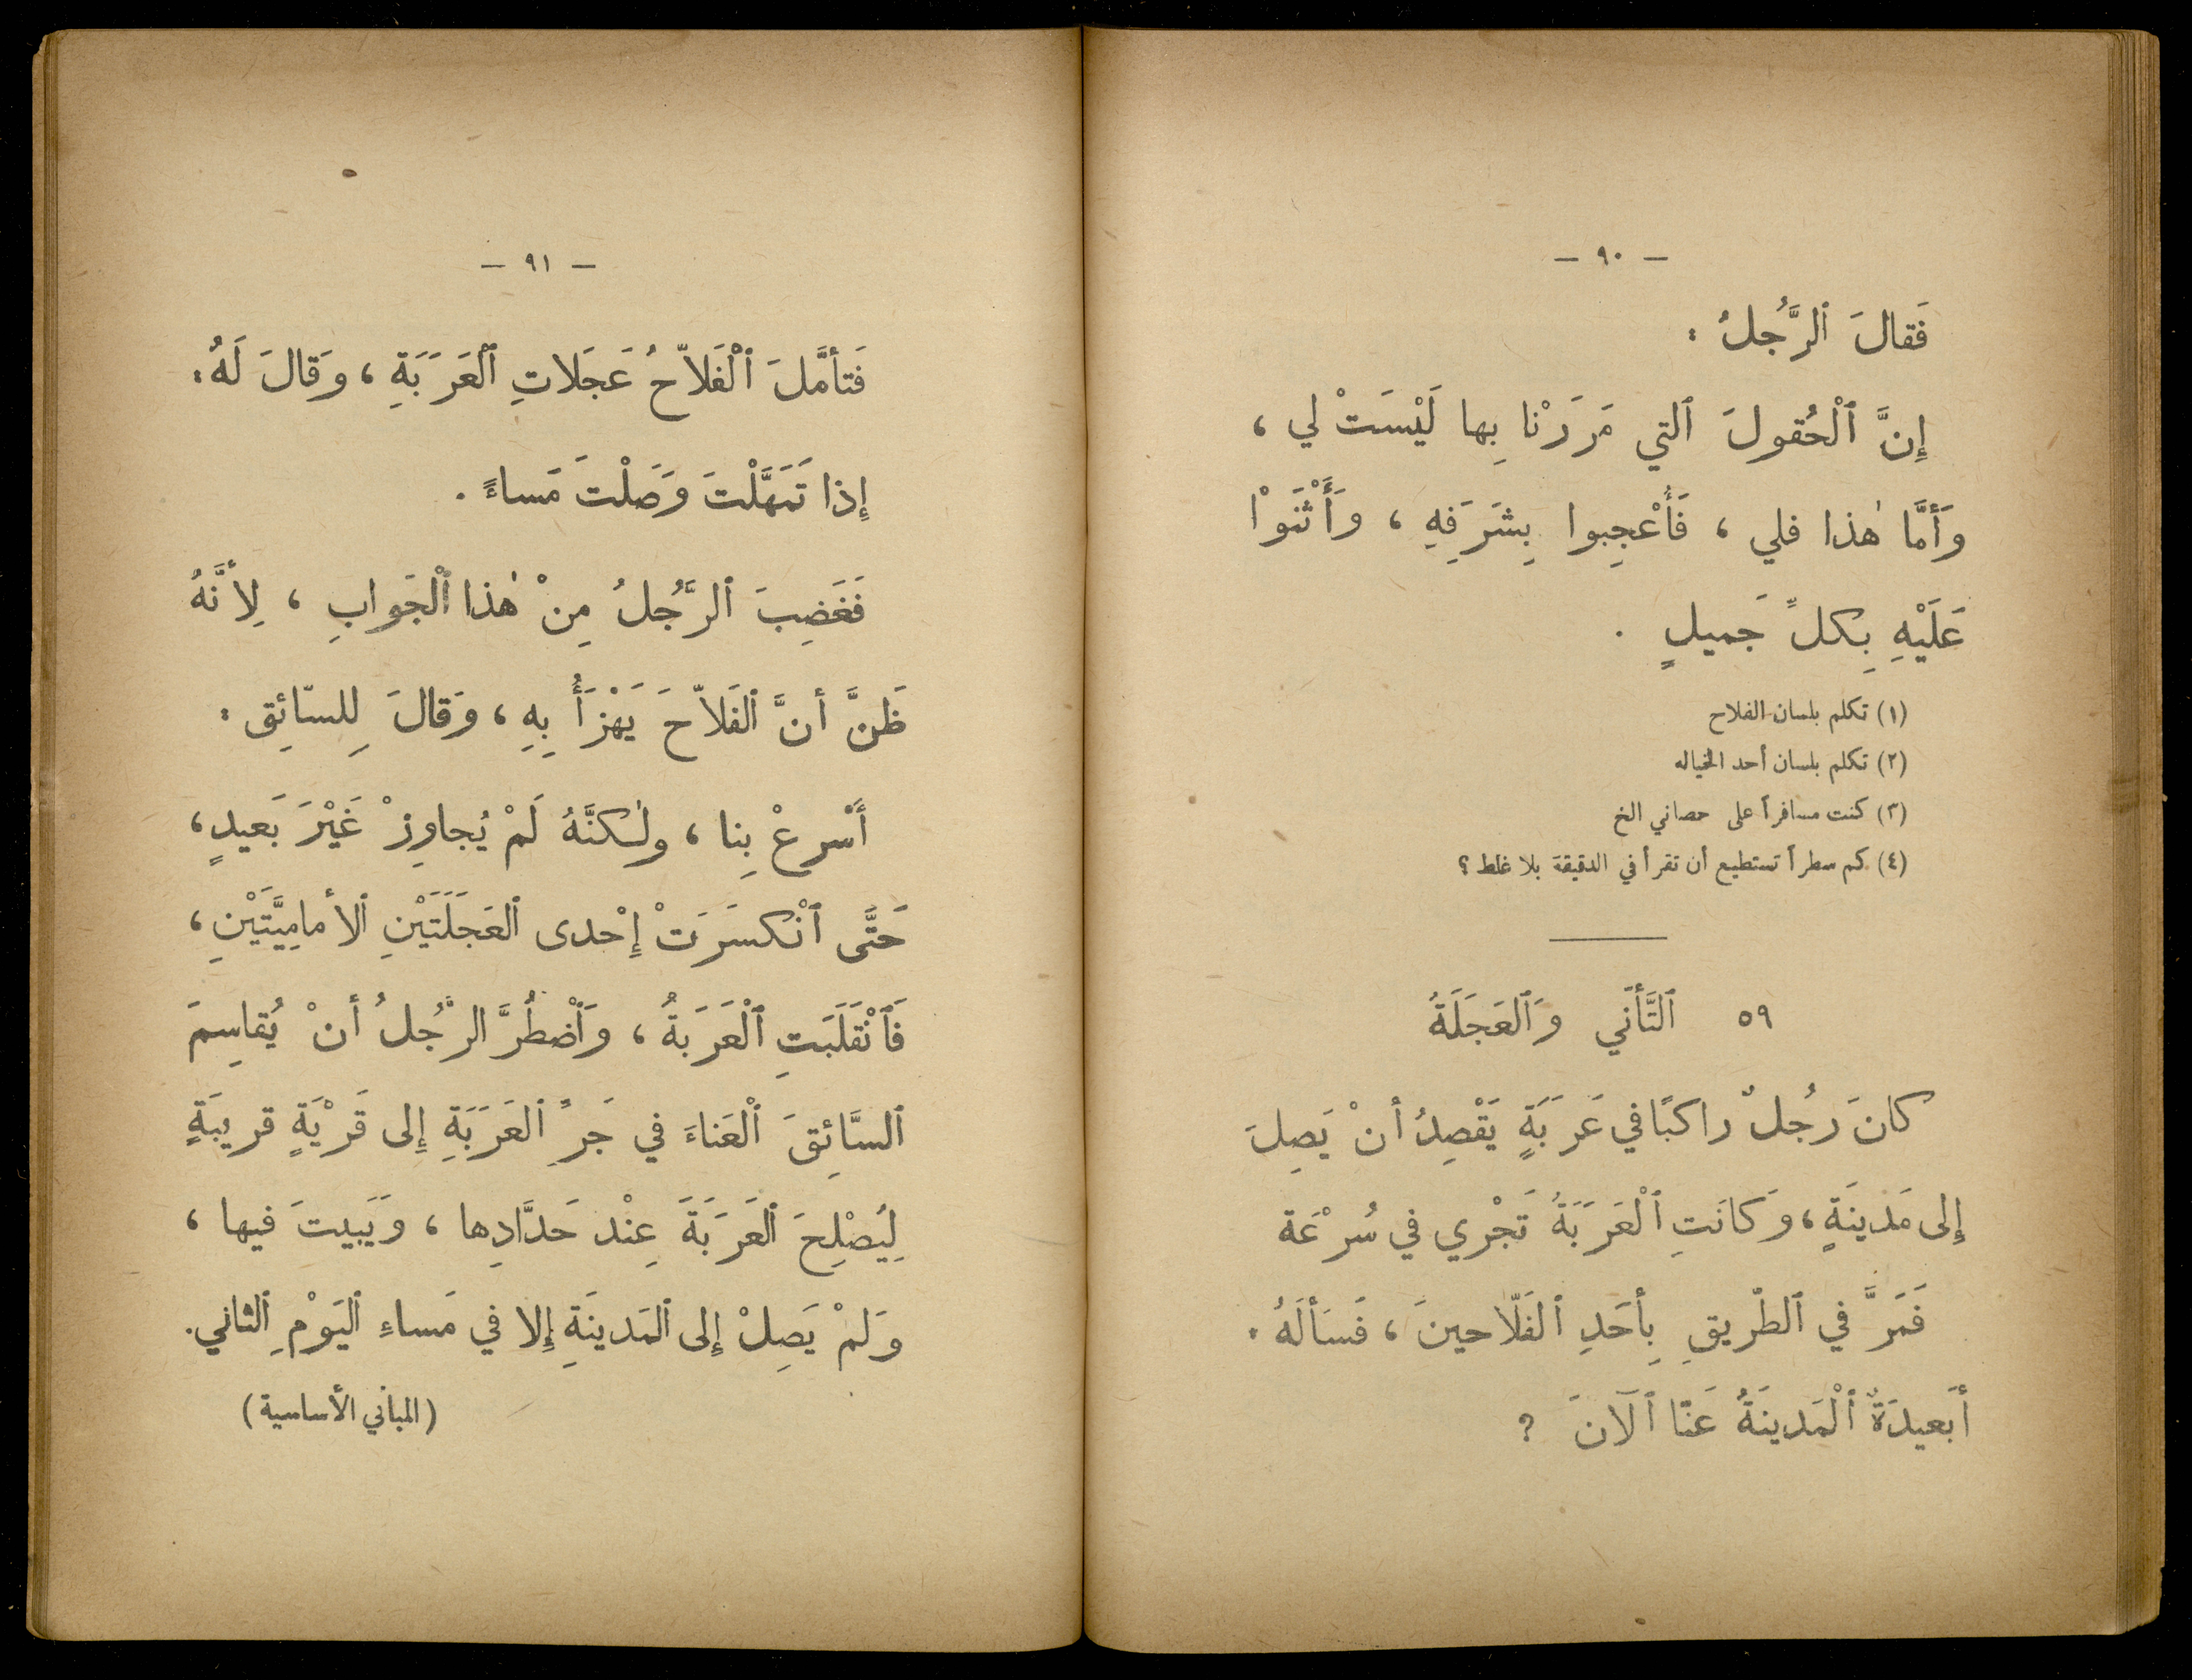 — ٩٠ —
فَقالَ ٱلرَّجُلُ :
إِنَّ ٱلْحُقولَ ٱلتي مَرَرْنا بِها لَيْسَتْ لي ،
وَأَمَّا هٰذا فلي ، فَأَعْجِبوا بِشَرَفِهِ ، وَأَثْنَوْا
عَلَيْهِ بِكلِّ جَميلٍ .
(١) تكلم بلسان الفلاح
(٢) تكلم بلسان أحد الخياله
(٣) كنت مسافراً على حصاني الخ
(٤) كم سطراً تستطيع أن تقرأ في الدقيقة بلا غلط ؟
٥٩ ٱلتَّأَنّي وَٱلعَجَلَةُ
كانَ رَجُلٌ راكبًا في عَرَبَةٍ يَقْصِدُ أنْ يَصِلَ
إِلى مَدينَةٍ ، وَكانَتِ ٱلْعَرَبَةُ تَجْري في سُرْعَة
فَمَرَّ في ٱلطّريقِ بِأحَدِ ٱلفَلّاحينَ ، فَسَألَهُ .
أبَعيدَةٌ ٱلْمَدينَةُ عَنّا ٱلآنَ ؟
— ٩١ —
فَتأمَّلَ ٱلْفَلاّحُ عَجَلاتِ ٱلْعَرَبَةِ ، وَقالَ لَهُ :
إِذا تَمَهَّلْتَ وَصَلْتَ مَساءً .
فَغَضِبَ ٱلرَّجُلُ مِنْ هٰذا ٱلْجَوابِ ، لِأنَّهُ
ظَنَّ أنَّ ٱلفَلاّحَ يَهْزَأُ بِهِ ، وَقالَ لِلسّائِق :
أَسْرِعْ بِنا ، ولٰكنَّهُ لَمْ يُجاوِزْ غَيْرَ بَعيدٍ ،
حَتَّى ٱنْكسَرَتْ إِحْدى ٱلعَجَلَتَيْنِ ٱلأمامِيَّتَيْنِ ،
فَٱنْقَلَبَتِ ٱلْعَرَبَةُ ، وَٱضْطُرَّ الرَّجُلُ أنْ يُقاسِمَ
ٱلسَّائِقَ ٱلْعَناءَ في جَرِّ ٱلعَرَبَةِ إِلى قَرْيَةٍ قريبَةٍ
لِيُصْلِحَ ٱلعَرَبَةَ عِنْد حَدَّادِها ، وَيَبيتَ فيها ،
وَلَمْ يَصِلْ إِلى ٱلمَدينَةِ إِلا في مَساءِ ٱليَوْمِ ٱلثاني .
(المباني الأساسية)